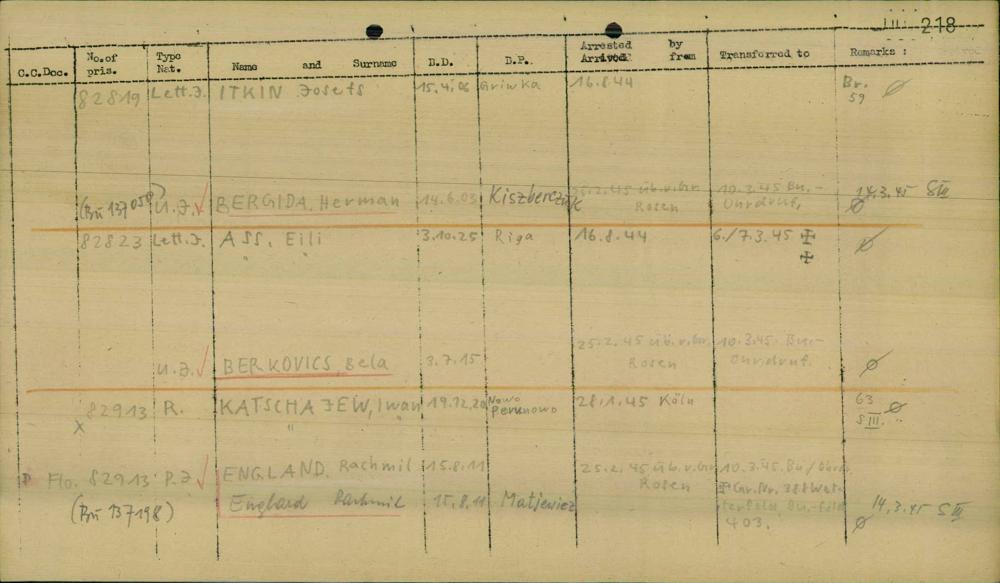 218
C.C.Doc. No. of pris. Type Nat. Name and Surname B.D. B.P. Arrested by Arrived from Transferred to Remarks :
82819 Lett.J. ITKIN Josefs 15.4.06 Griwka 16.8.44 Br. 59
(Bu 137050) U.J. BERGIDA, Herman 14.6.03 Kiszberczuk 25.2.45 üb.v.Gr. Rosen 10.3.45 Bu.- Ohrdruf. 14.3.45 SIII
82823 Lett.J. ASS, Eili 3.10.25 Riga 16.8.44 6./7.3.45 ✠
" " ✠
U.J. BERKOVICS, Bela 3.7.15 25.2.45 üb.v.Gr. Rosen 10.3.45. Bu.- Ohrdruf.
82913 R. KATSCHAJEW, Iwan 19.12.20 Nowo 28.1.45 Köln 63 SIII.
x "
Flo. 82913 P.J. ENGLAND, Rachmil 15.8.11 25.2.45 üb.v.Gr. Rosen 10.3.45. Bu/
(Bu 137198) Englard Rachmil 15.8.11 Matjewiez Gr.Nr. 403. 14.3.45 SIII